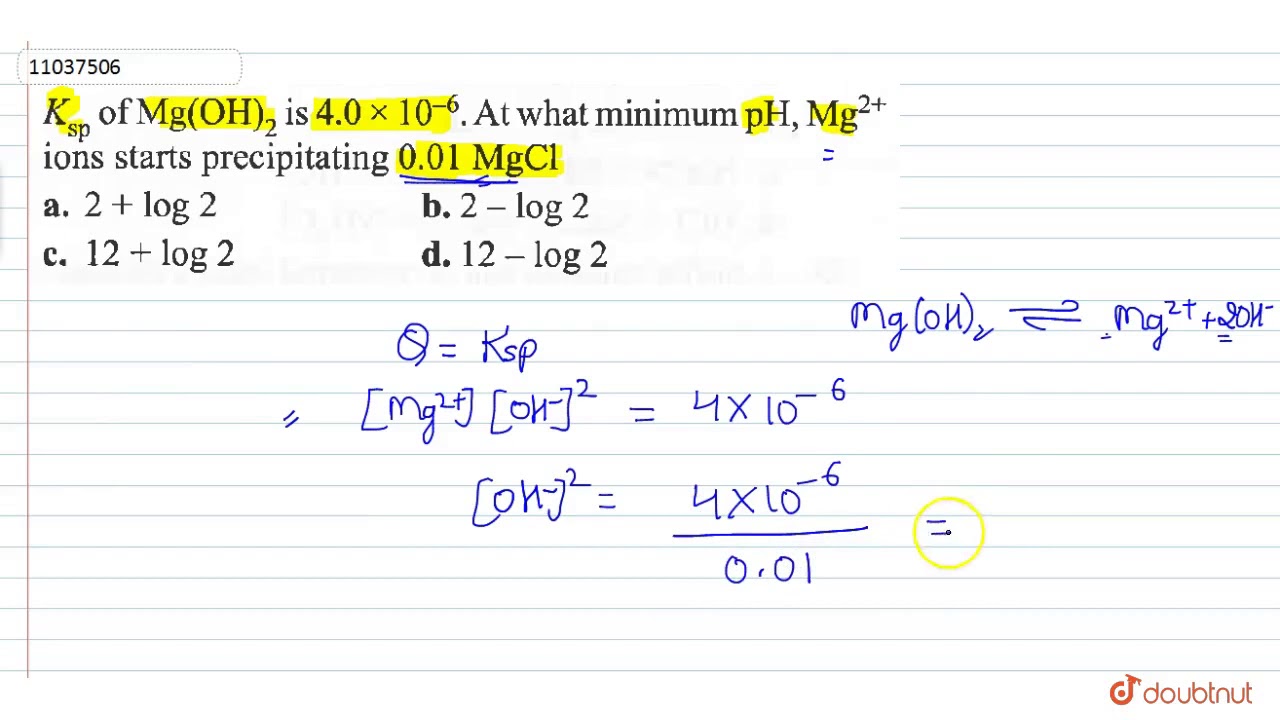 11037506
Ksp of Mg(OH)₂ is 4.0 × 10⁻⁶. At what minimum pH, Mg²⁺
ions starts precipitating 0.01 MgCl
a. 2 + log 2 b. 2 – log 2
c. 12 + log 2 d. 12 – log 2
Mg(OH)₂ ⇌ Mg²⁺ + 2OH⁻
Q = Ksp
= [Mg²⁺] [OH⁻]² = 4 × 10⁻⁶
[OH⁻]² = 4 × 10⁻⁶ =
0.01
doubtnut